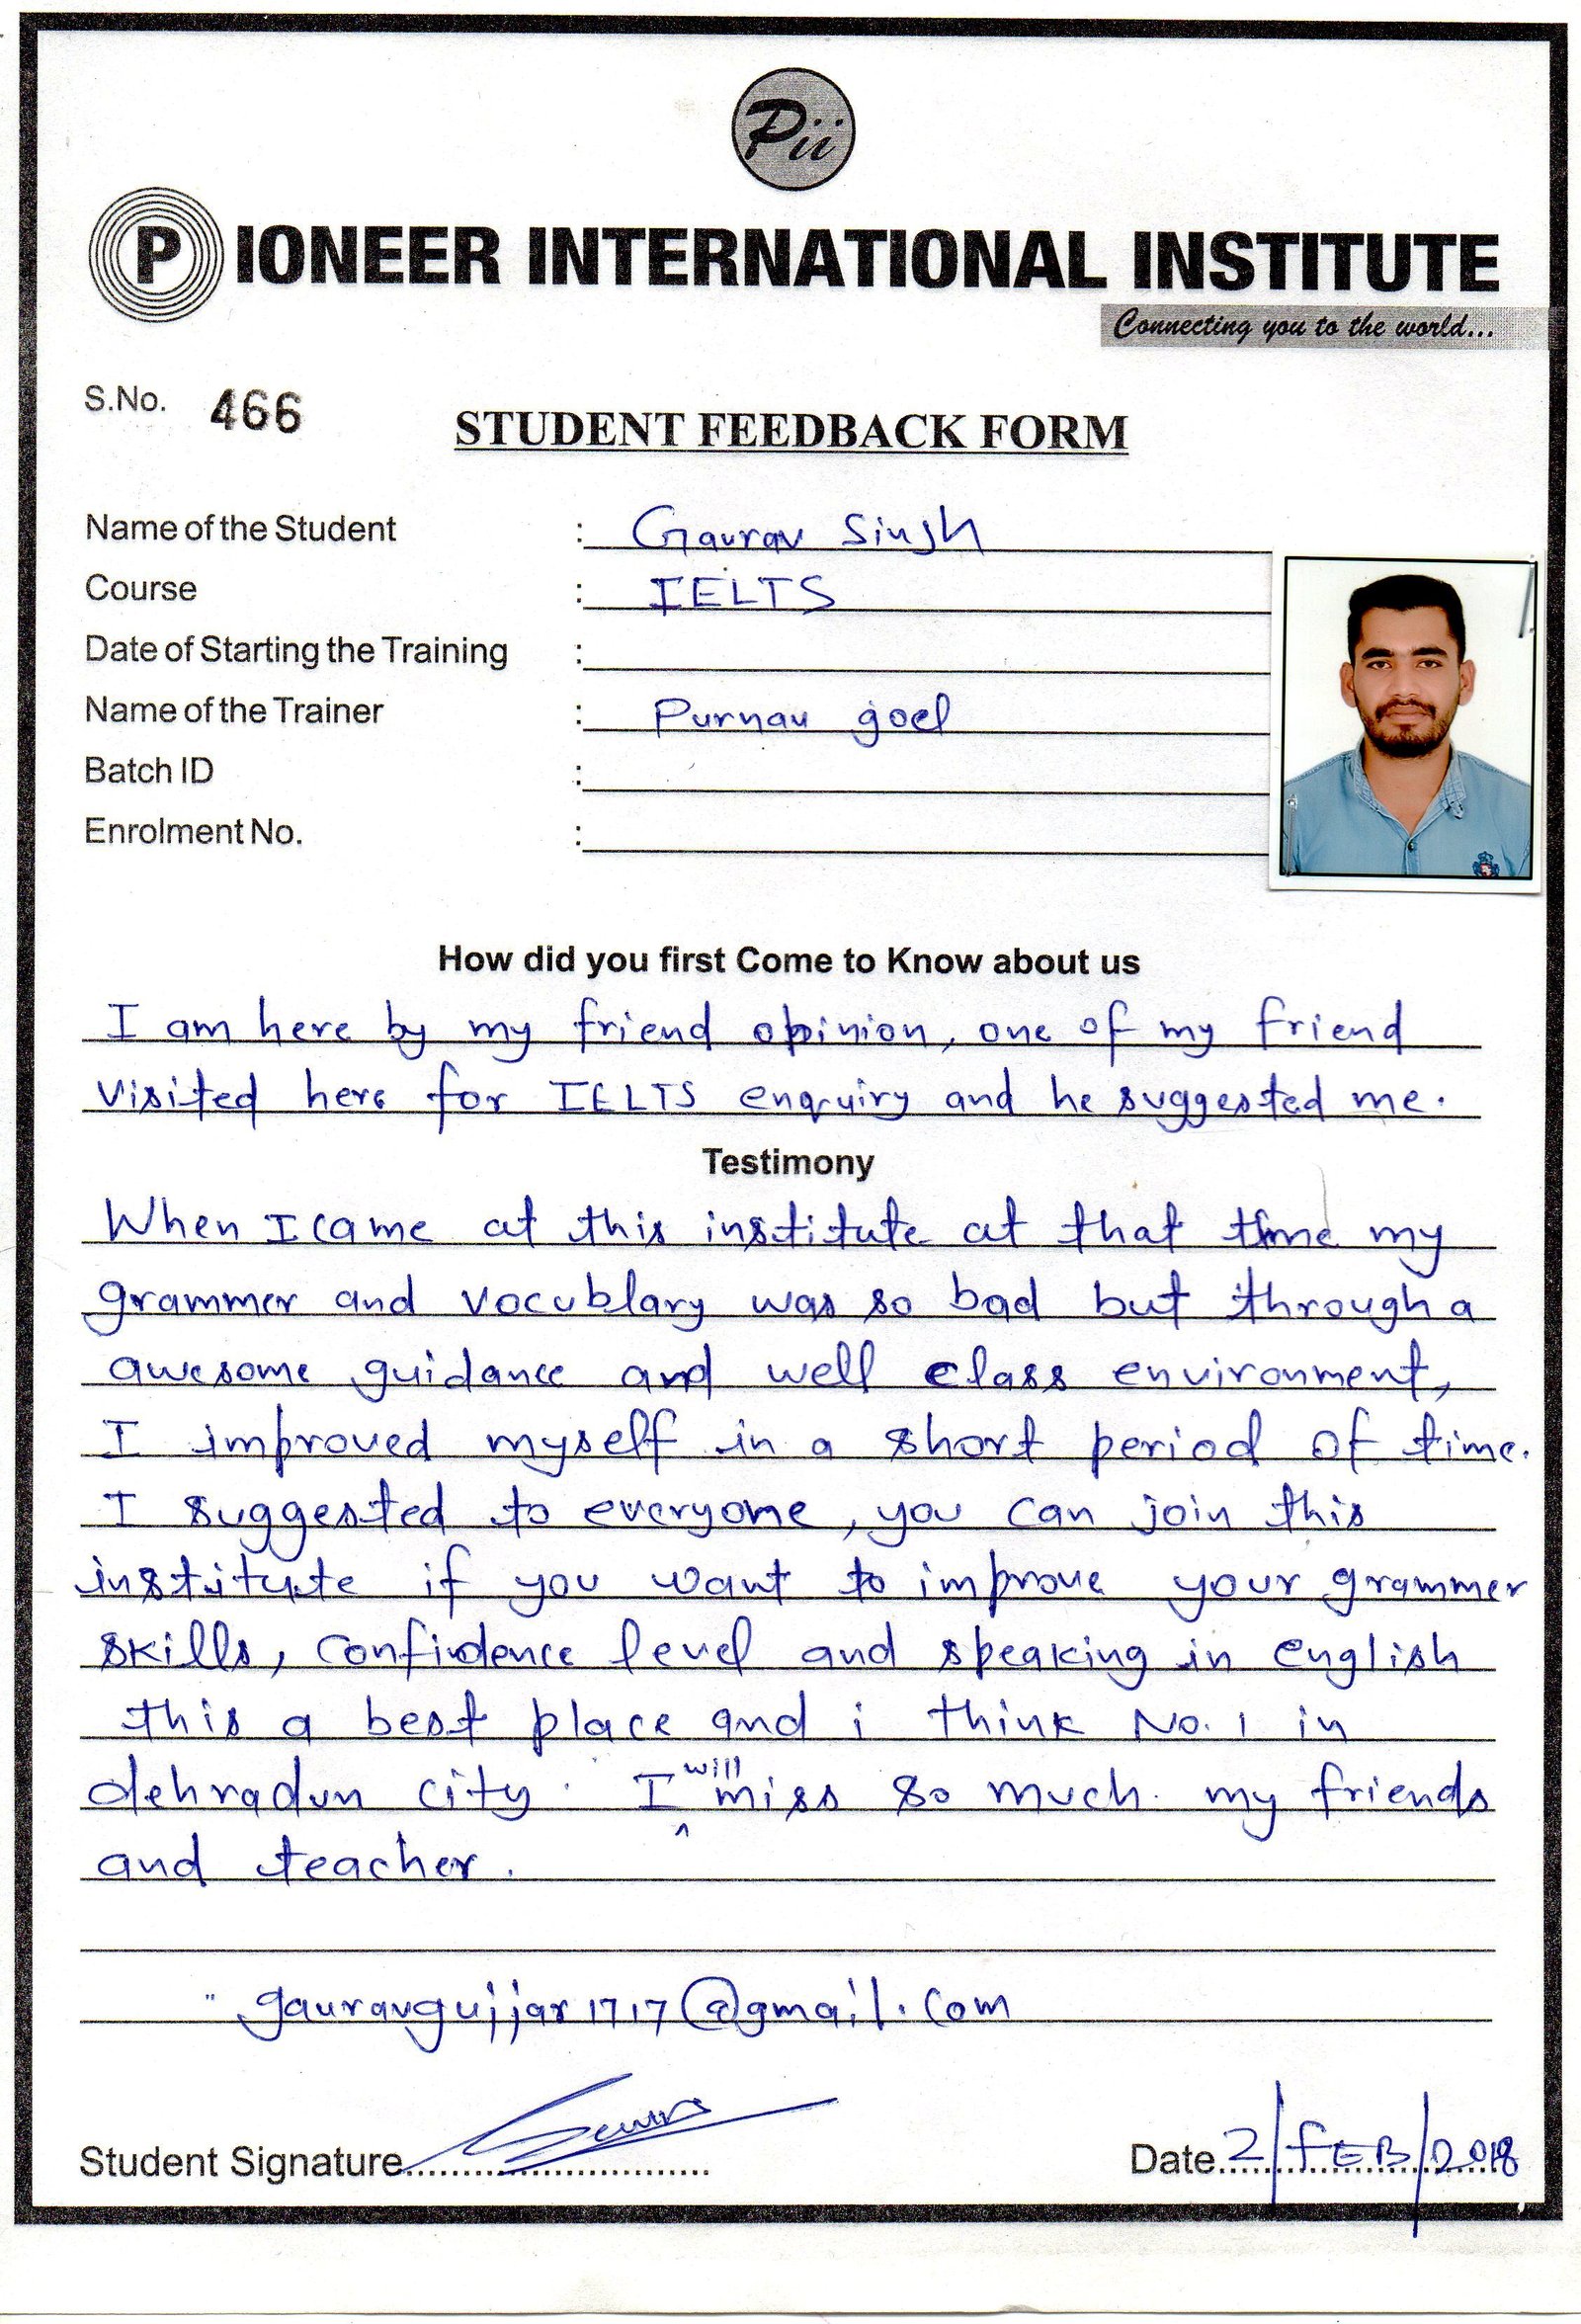 Pii
PIONEER INTERNATIONAL INSTITUTE
Connecting you to the world...
S.No. 466
STUDENT FEEDBACK FORM
Name of the Student : Gaurav Singh
Course : IELTS
Date of Starting the Training :
Name of the Trainer : Purnau goel
Batch ID :
Enrolment No. :
How did you first Come to Know about us
I am here by my friend opinion, one of my friend
visited here for IELTS enquiry and he suggested me.
Testimony
When I came at this institute at that time my
grammer and vocublary was so bad but through a
awesome guidance and well class environment,
I improved myself in a short period of time.
I suggested to everyone, you can join this
institute if you want to improve your grammer
skills, confidence level and speaking in english
this a best place and i think No. 1 in
dehradun city. I will miss so much my friends
and teacher.
" gauravgujjar1717@gmail.com
Student Signature..............................
Date 2/FEB/2018